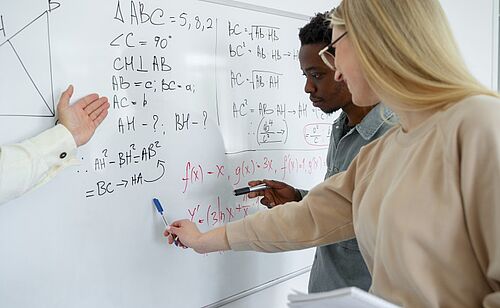 B
△ABC = 5, 8, 2
∠C = 90°
CM⊥AB
AB = c; BC = a;
AC = b
AH - ? ; BH - ?
AH² - BH² = AB²
= BC → HA
BC = √AB HB
BC² = AB HB → H
AC = √AB HB
AC² = AB AH → AH
f(x) - x, g(x) = 3x, f(x)